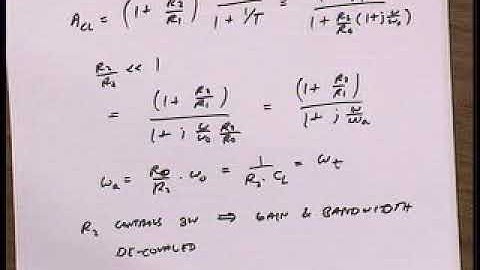 A_CL = (1 + R2/R1) 1/(1 + 1/T) = (1 + R2/R1)/(1 + R2/R0 (1 + j ω/ω0))
R2/R0 << 1
= (1 + R2/R1)/(1 + j ω/ω0 R2/R0) = (1 + R2/R1)/(1 + j ω/ωa)
ωa = R0/R2 · ω0 = 1/(R2 · CL) = ωt
R2 CONTROLS BW ⇒ GAIN & BANDWIDTH
DE-COUPLED